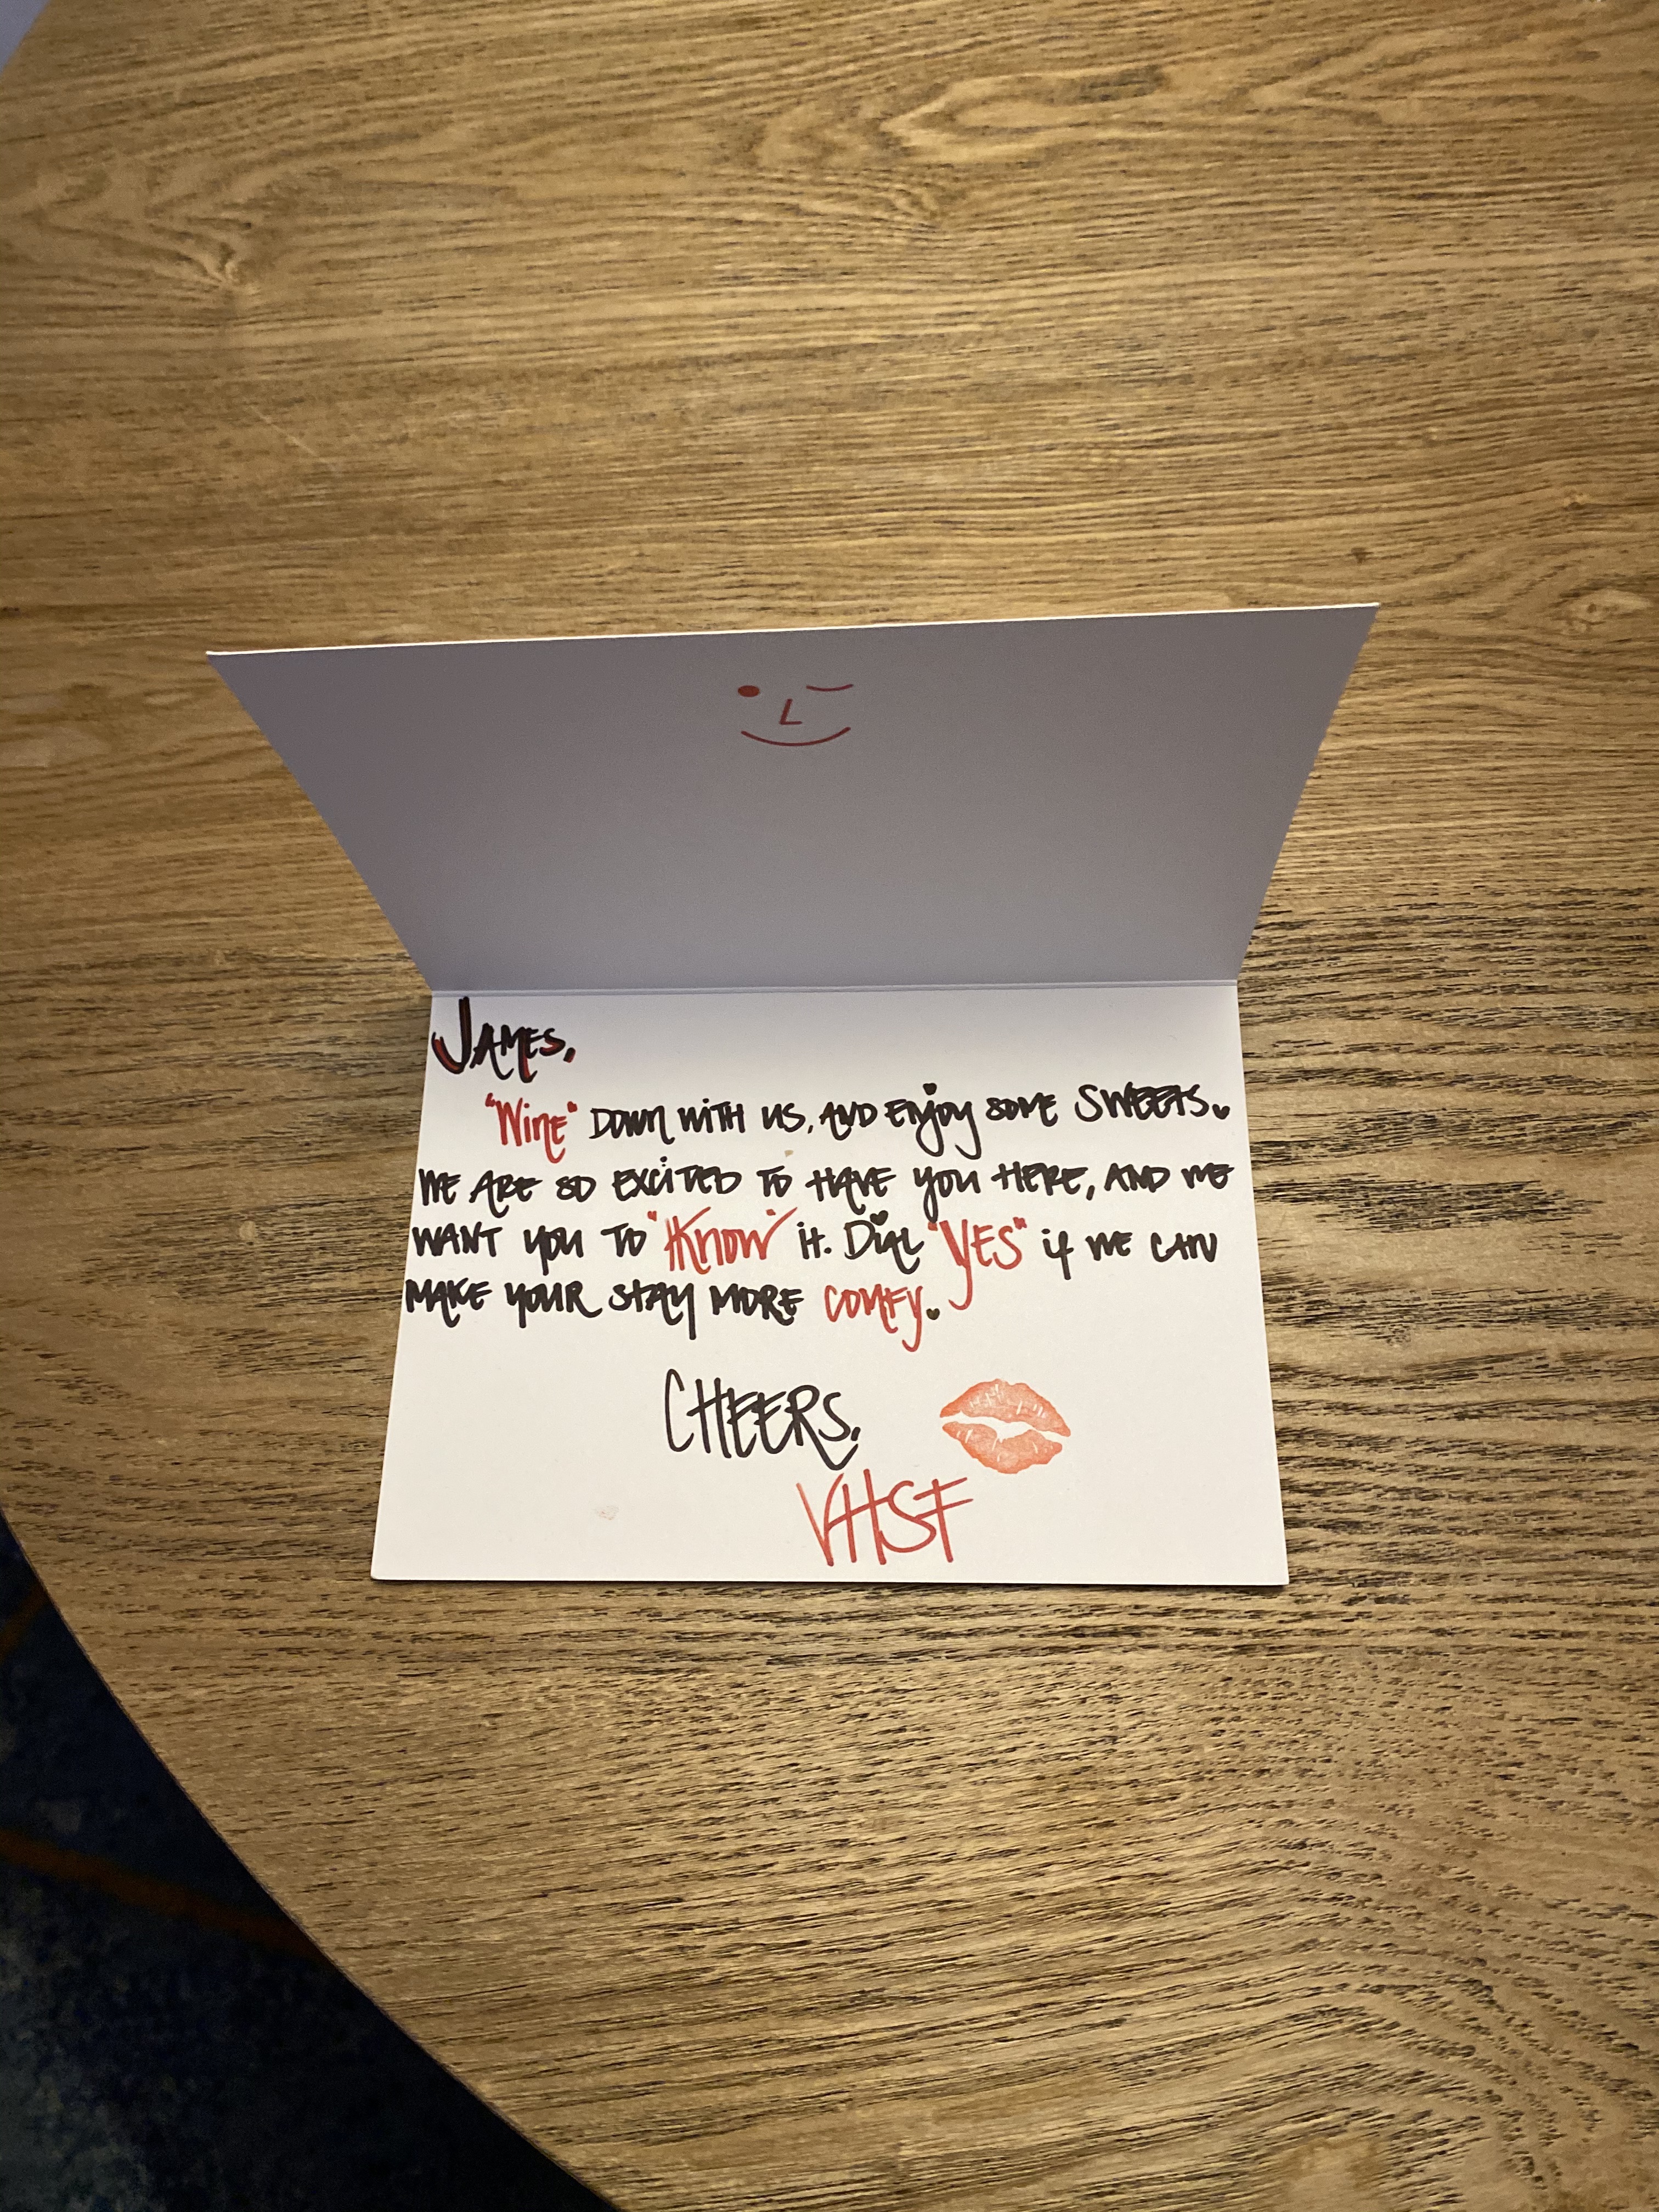 JAMES,
"WinE" DOWN WITH US, AND ENjoy SOME SWEETS.
WE ARE SO EXCiTED TO HAVE YOU HERE, AND WE
WANT YOU TO "Know" iT. DiAL "YES" if WE CAN
MAKE YOUR STAY MORE COMFY.
CHEERS,
VHSF